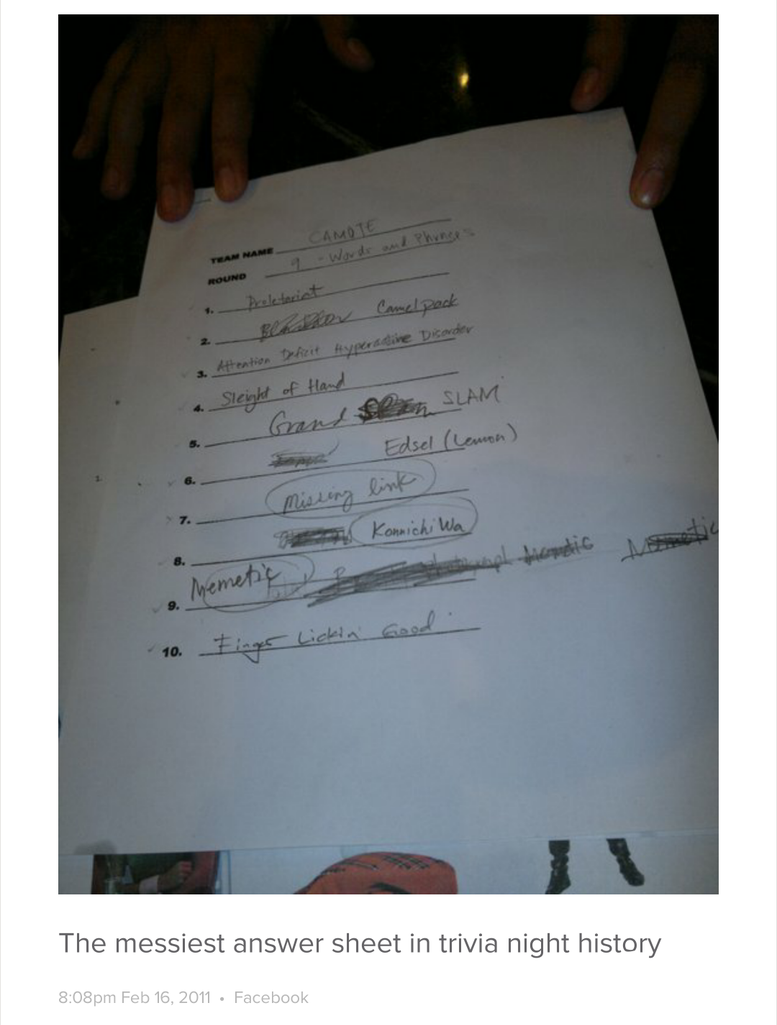 TEAM NAME CAMOTE
ROUND 9 - Words and Phrases
1. Proletariat
2. Camelpack
3. Attention Deficit Hyperactive Disorder
4. Sleight of Hand
5. Grand SLAM
6. Edsel (Lemon)
7. Missing link
8. Konnichi Wa
9. Memetic
10. Finger Lickin' Good
The messiest answer sheet in trivia night history
8:08pm Feb 16, 2011 • Facebook